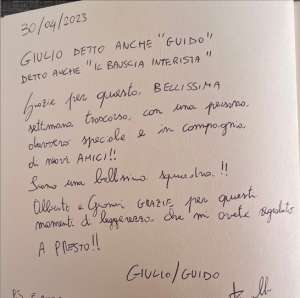 30/04/2023
GIULIO DETTO ANCHE "GUIDO"
DETTO ANCHE "IL BAUSCIA INTERISTA"
Grazie per questa BELLISSIMA
settimana trascorsa, con una persona
davvero speciale e in compagnia
di nuovi AMICI!!
Siamo una bellissima squadra!!
Alberto e Gianni GRAZIE per questi
momenti di leggerezza che mi avete regalato
A PRESTO!!
GIULIO/GUIDO
PS